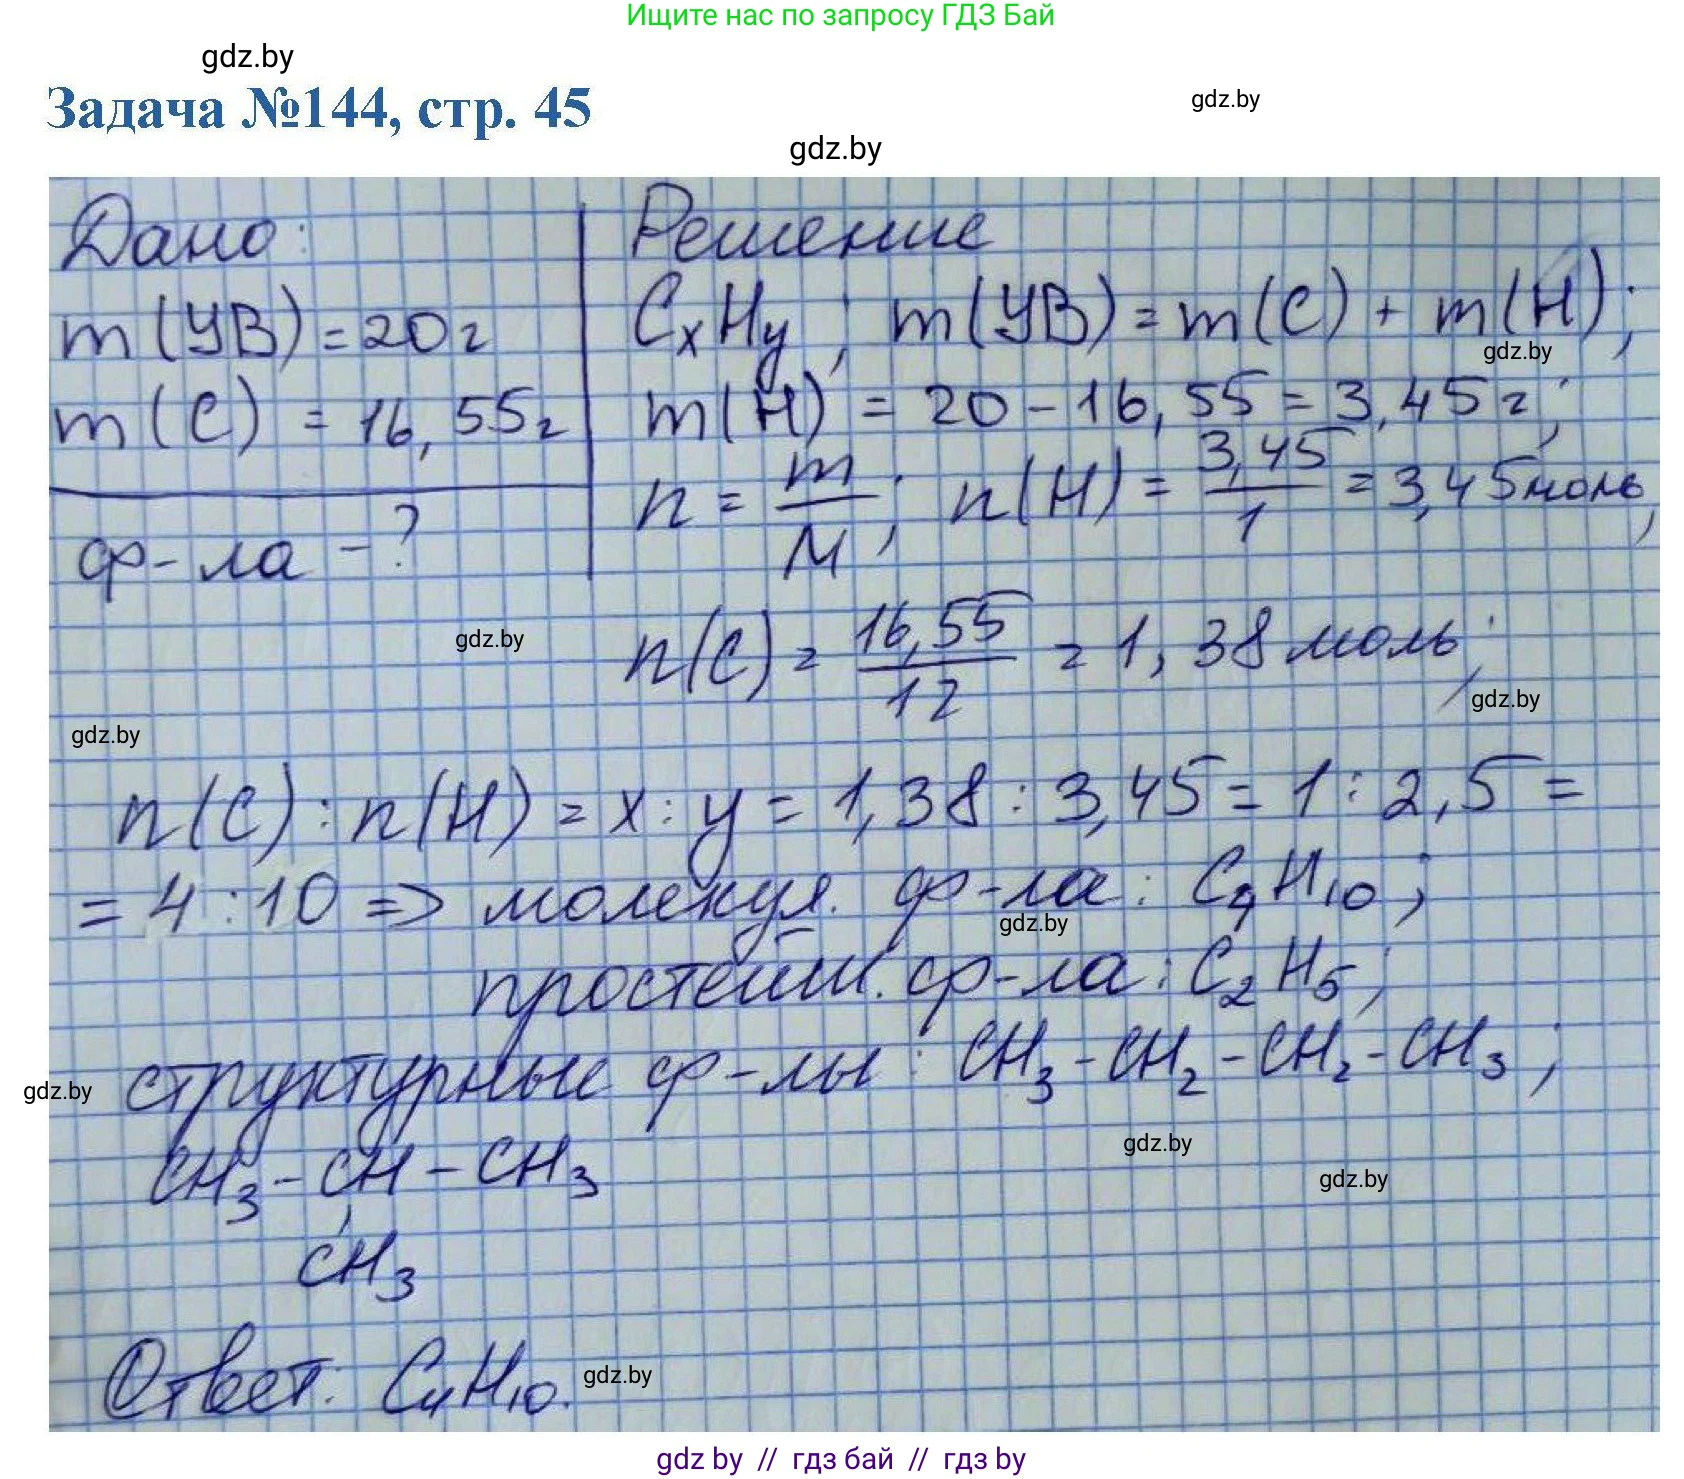 Ищите нас по запросу ГДЗ Бай
gdz.by
Задача №144, стр. 45
gdz.by
gdz.by
Дано:
m(УВ) = 20 г
m(C) = 16,55 г
ф-ла - ?
Решение
CxHy; m(УВ) = m(C) + m(H);
gdz.by
m(H) = 20 - 16,55 = 3,45 г;
n = m/M; n(H) = 3,45/1 = 3,45 моль,
gdz.by
n(C) = 16,55/12 = 1,38 моль;
gdz.by
gdz.by
n(C) : n(H) = x : y = 1,38 : 3,45 = 1 : 2,5 =
= 4 : 10 => молекул. ф-ла: C4H10;
gdz.by
простейш. ф-ла: C2H5;
структурные ф-лы: CH3-CH2-CH2-CH3;
gdz.by
gdz.by
CH3-CH-CH3
gdz.by
CH3
Ответ: C4H10.
gdz.by
gdz by // гдз бай // гдз by